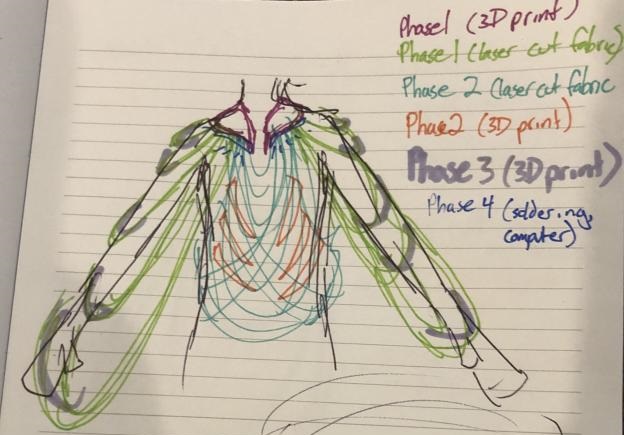 Phase 1 (3D print)
Phase 1 (laser cut fabric)
Phase 2 (laser cut fabric
Phase 2 (3D print)
Phase 3 (3D print)
Phase 4 (soldering,
computer)